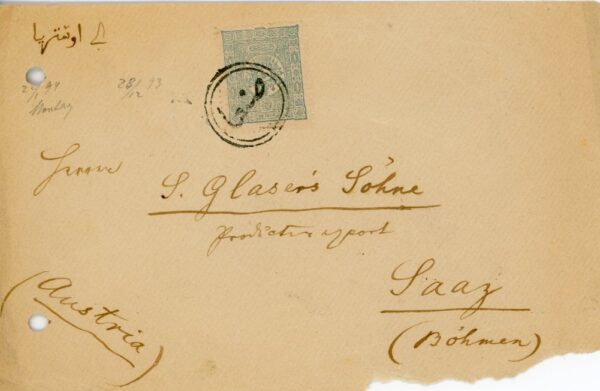 اوستريا
28/12 93
Monday
Herren
S. Glaser's Söhne
Producten export
Saaz
(Böhmen)
(Austria)